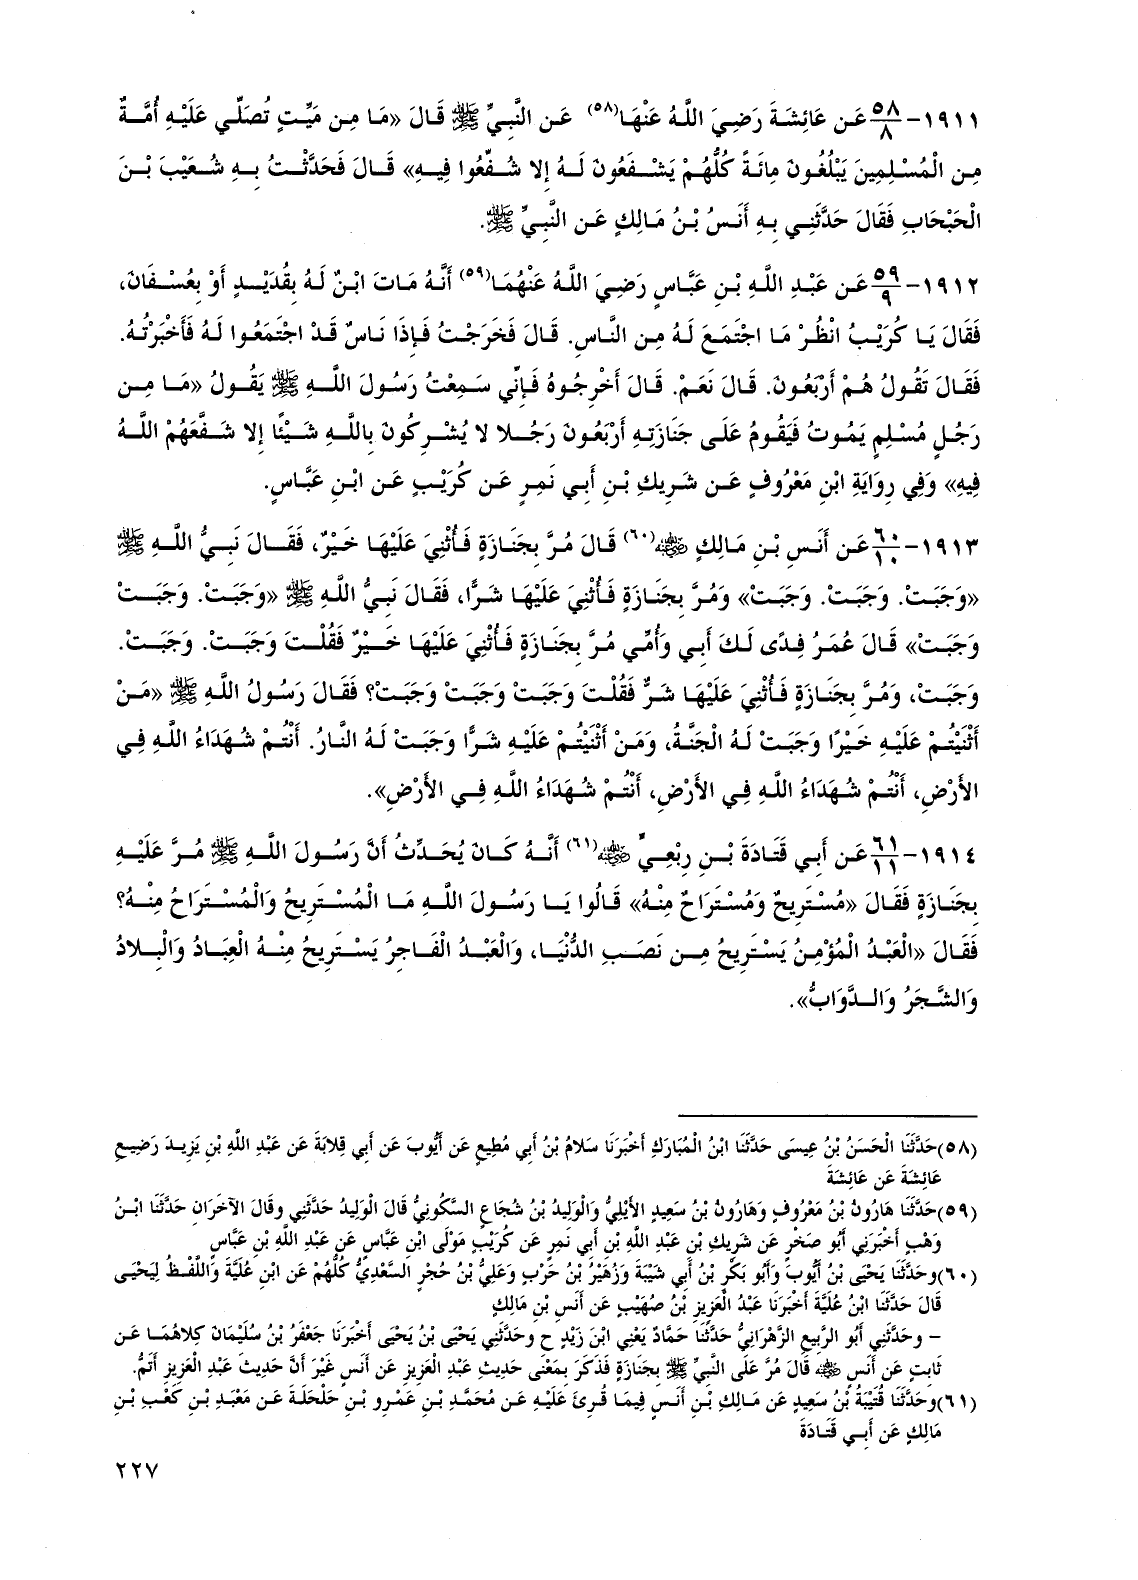 ١٩١١-٥٨/٨ عَن عَائِشَةَ رَضِيَ اللَّهُ عَنْهَا(٥٨) عَن النَّبِيِّ ﷺ قَالَ «مَا مِن مَيِّتٍ تُصَلِّي عَلَيْهِ أُمَّةٌ
مِن الْمُسْلِمِينَ يَبْلُغُونَ مِائَةً كُلُّهُمْ يَشْفَعُونَ لَهُ إلا شُفِّعُوا فِيهِ» قَالَ فَحَدَّثْتُ بِهِ شُعَيْبَ بْنَ
الْحَبْحَابِ فَقَالَ حَدَّثَنِي بِهِ أَنَسُ بْنُ مَالِكٍ عَن النَّبِيِّ ﷺ.
١٩١٢-٥٩/٩ عَن عَبْدِ اللَّهِ بْنِ عَبَّاسٍ رَضِيَ اللَّهُ عَنْهُمَا(٥٩) أَنَّهُ مَاتَ ابْنٌ لَهُ بِقُدَيْدٍ أَوْ بِعُسْفَانَ،
فَقَالَ يَا كُرَيْبُ انْظُرْ مَا اجْتَمَعَ لَهُ مِن النَّاسِ. قَالَ فَخَرَجْتُ فَإِذَا نَاسٌ قَدْ اجْتَمَعُوا لَهُ فَأَخْبَرْتُهُ.
فَقَالَ تَقُولُ هُمْ أَرْبَعُونَ. قَالَ نَعَمْ. قَالَ أَخْرِجُوهُ فَإِنِّي سَمِعْتُ رَسُولَ اللَّهِ ﷺ يَقُولُ «مَا مِن
رَجُلٍ مُسْلِمٍ يَمُوتُ فَيَقُومُ عَلَى جَنَازَتِهِ أَرْبَعُونَ رَجُلا لا يُشْرِكُونَ بِاللَّهِ شَيْئًا إلا شَفَّعَهُمْ اللَّهُ
فِيهِ» وَفِي رِوَايَةِ ابْنِ مَعْرُوفٍ عَن شَرِيكِ بْنِ أَبِي نَمِرٍ عَن كُرَيْبٍ عَن ابْنِ عَبَّاسٍ.
١٩١٣-٦٠/١٠ عَن أَنَسِ بْنِ مَالِكٍ ﵁(٦٠) قَالَ مُرَّ بِجَنَازَةٍ فَأُثْنِيَ عَلَيْهَا خَيْرٌ، فَقَالَ نَبِيُّ اللَّهِ ﷺ
«وَجَبَتْ. وَجَبَتْ. وَجَبَتْ» وَمُرَّ بِجَنَازَةٍ فَأُثْنِيَ عَلَيْهَا شَرًّا، فَقَالَ نَبِيُّ اللَّهِ ﷺ «وَجَبَتْ. وَجَبَتْ
وَجَبَتْ» قَالَ عُمَرُ فِدًى لَكَ أَبِي وَأُمِّي مُرَّ بِجَنَازَةٍ فَأُثْنِيَ عَلَيْهَا خَيْرٌ فَقُلْتَ وَجَبَتْ. وَجَبَتْ.
وَجَبَتْ، وَمُرَّ بِجَنَازَةٍ فَأُثْنِيَ عَلَيْهَا شَرٌّ فَقُلْتَ وَجَبَتْ وَجَبَتْ وَجَبَتْ؟ فَقَالَ رَسُولُ اللَّهِ ﷺ «مَنْ
أَثْنَيْتُمْ عَلَيْهِ خَيْرًا وَجَبَتْ لَهُ الْجَنَّةُ، وَمَنْ أَثْنَيْتُمْ عَلَيْهِ شَرًّا وَجَبَتْ لَهُ النَّارُ. أَنْتُمْ شُهَدَاءُ اللَّهِ فِي
الأَرْضِ، أَنْتُمْ شُهَدَاءُ اللَّهِ فِي الأَرْضِ، أَنْتُمْ شُهَدَاءُ اللَّهِ فِي الأَرْضِ».
١٩١٤-٦١/١١ عَن أَبِي قَتَادَةَ بْنِ رِبْعِيٍّ ﵁(٦١) أَنَّهُ كَانَ يُحَدِّثُ أَنَّ رَسُولَ اللَّهِ ﷺ مُرَّ عَلَيْهِ
بِجَنَازَةٍ فَقَالَ «مُسْتَرِيحٌ وَمُسْتَرَاحٌ مِنْهُ» قَالُوا يَا رَسُولَ اللَّهِ مَا الْمُسْتَرِيحُ وَالْمُسْتَرَاحُ مِنْهُ؟
فَقَالَ «الْعَبْدُ الْمُؤْمِنُ يَسْتَرِيحُ مِن نَصَبِ الدُّنْيَا، وَالْعَبْدُ الْفَاجِرُ يَسْتَرِيحُ مِنْهُ الْعِبَادُ وَالْبِلادُ
وَالشَّجَرُ وَالدَّوَابُّ».
(٥٨)حَدَّثَنَا الْحَسَنُ بْنُ عِيسَى حَدَّثَنَا ابْنُ الْمُبَارَكِ أَخْبَرَنَا سَلامُ بْنُ أَبِي مُطِيعٍ عَن أَيُّوبَ عَن أَبِي قِلابَةَ عَن عَبْدِ اللَّهِ بْنِ يَزِيدَ رَضِيعِ
عَائِشَةَ عَن عَائِشَةَ
(٥٩)حَدَّثَنَا هَارُونُ بْنُ مَعْرُوفٍ وَهَارُونُ بْنُ سَعِيدٍ الأَيْلِيُّ وَالْوَلِيدُ بْنُ شُجَاعٍ السَّكُونِيُّ قَالَ الْوَلِيدُ حَدَّثَنِي وقَالَ الآخَرَانِ حَدَّثَنَا ابْنُ
وَهْبٍ أَخْبَرَنِي أَبُو صَخْرٍ عَن شَرِيكِ بْنِ عَبْدِ اللَّهِ بْنِ أَبِي نَمِرٍ عَن كُرَيْبٍ مَوْلَى ابْنِ عَبَّاسٍ عَن عَبْدِ اللَّهِ بْنِ عَبَّاسٍ
(٦٠)وحَدَّثَنَا يَحْيَى بْنُ أَيُّوبَ وَأَبُو بَكْرِ بْنُ أَبِي شَيْبَةَ وَزُهَيْرُ بْنُ حَرْبٍ وَعَلِيُّ بْنُ حُجْرٍ السَّعْدِيُّ كُلُّهُمْ عَن ابْنِ عُلَيَّةَ وَاللَّفْظُ لِيَحْيَى
قَالَ حَدَّثَنَا ابْنُ عُلَيَّةَ أَخْبَرَنَا عَبْدُ الْعَزِيزِ بْنُ صُهَيْبٍ عَن أَنَسِ بْنِ مَالِكٍ
- وحَدَّثَنِي أَبُو الرَّبِيعِ الزَّهْرَانِيُّ حَدَّثَنَا حَمَّادٌ يَعْنِي ابْنَ زَيْدٍ ح وحَدَّثَنِي يَحْيَى بْنُ يَحْيَى أَخْبَرَنَا جَعْفَرُ بْنُ سُلَيْمَانَ كِلاهُمَا عَن
ثَابِتٍ عَن أَنَسٍ ﵁ قَالَ مُرَّ عَلَى النَّبِيِّ ﷺ بِجَنَازَةٍ فَذَكَرَ بِمَعْنَى حَدِيثِ عَبْدِ الْعَزِيزِ عَن أَنَسٍ غَيْرَ أَنَّ حَدِيثَ عَبْدِ الْعَزِيزِ أَتَمُّ.
(٦١)وحَدَّثَنَا قُتَيْبَةُ بْنُ سَعِيدٍ عَن مَالِكِ بْنِ أَنَسٍ فِيمَا قُرِئَ عَلَيْهِ عَن مُحَمَّدِ بْنِ عَمْرِو بْنِ حَلْحَلَةَ عَن مَعْبَدِ بْنِ كَعْبِ بْنِ
مَالِكٍ عَن أَبِي قَتَادَةَ
٢٢٧